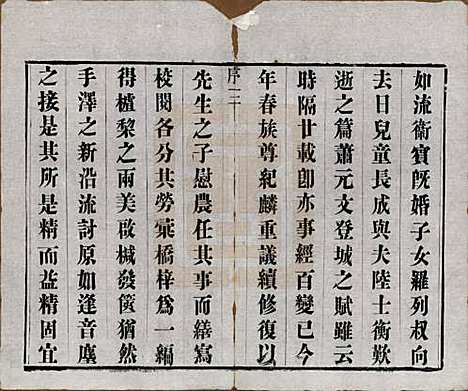 如流衛寶既婚子女羅列叔向
去日兒童長成與夫陸士衡歎
逝之篇蕭元文登城之賦雖云
時隔廿載卽亦事經百變已今
年春族尊紀麟重議續修復以
序 二
先生之子慰農任其事而繕寫
校閱各分其勞橐橋梓爲一編
得櫨棃之兩美啟椷發篋猶然
手澤之新沿流討原如逢音塵
之接是其所是精而益精固宜